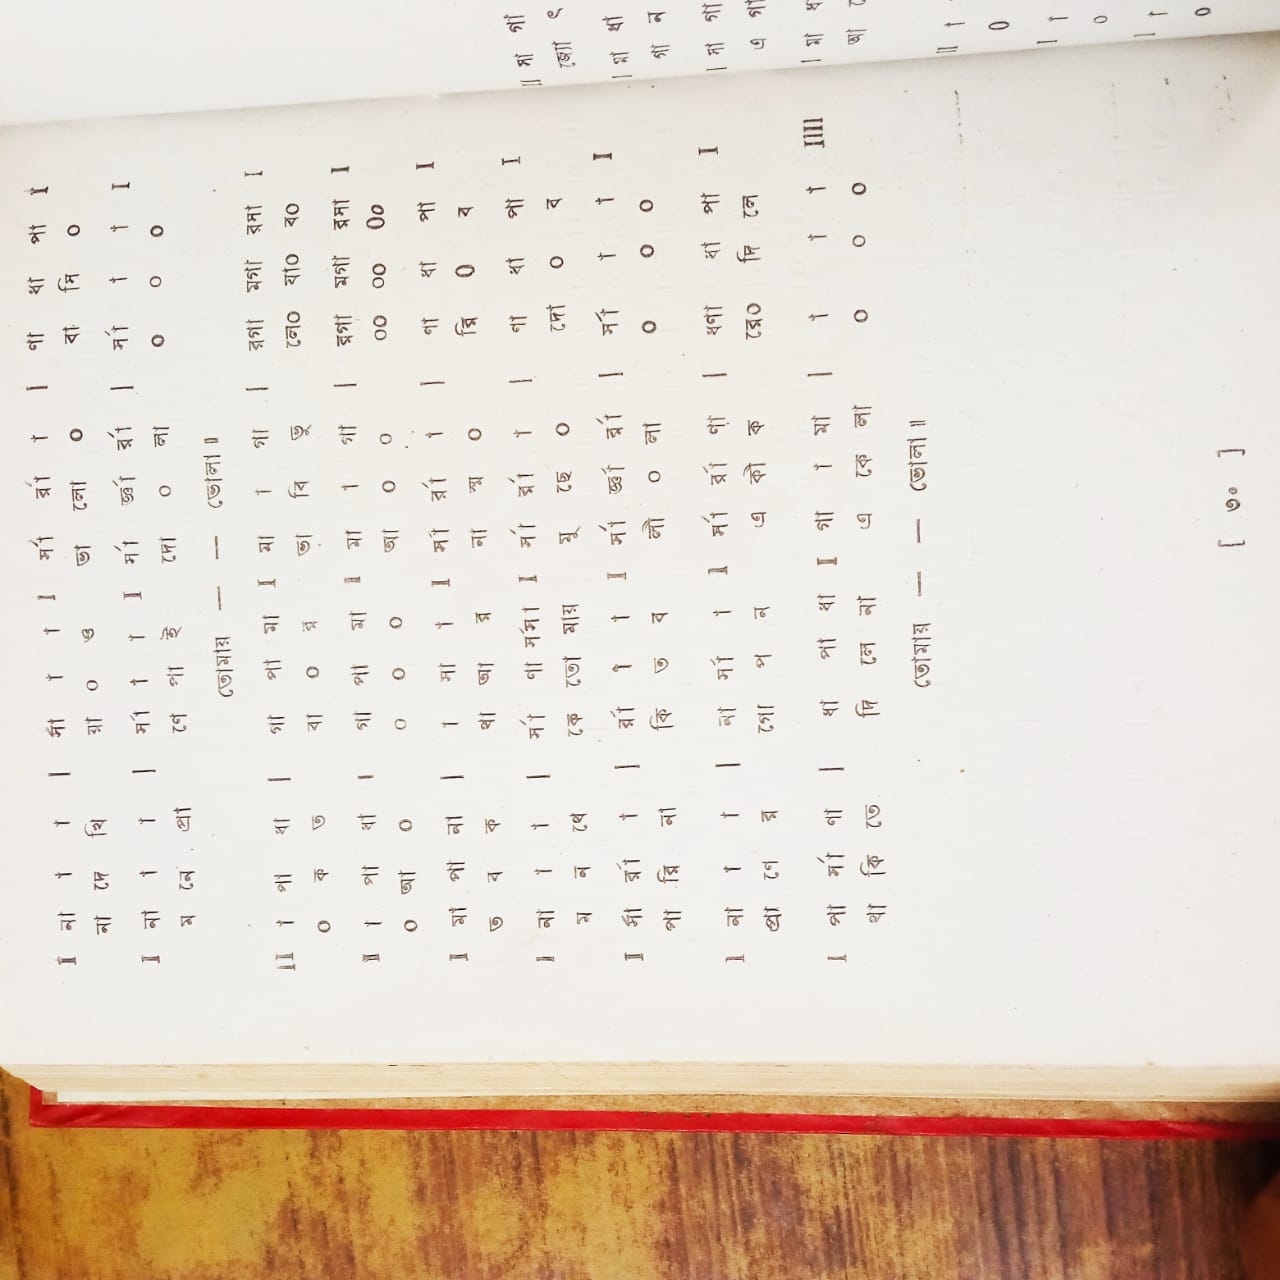 I না া া | র্সা া া I র্সা র্রা া | ণা ধা পা I
না দে খি য়া ০ ও ভা লো ০ বা সি ০
I না া া | র্সা া া I র্সা র্জ্ঞা র্রা | র্সা া া I
ম নে প্রা ণে পা ই দো ০ লা ০ ০ ০
তোমায় — — ভোলা॥
II া পা ধা | গা পা মা I মা া গা | রগা মগা রমা I
০ ক ত বা ০ র ভা বি ভু লে০ যা০ ব০
I া পা ধা | গা পা মা I মা া গা | রগা মগা রমা I
০ আ ০ ০ ০ ০ আ ০ ০ ০০ ০০ ০০
I মা পা না | া সা া I র্সা র্রা া | ণা ধা পা I
ত ব ক থা আ র না স্ম ০ রি ০ ব
I না া া | র্সা ণা র্সর্সা I র্সা র্রা া | ণা ধা পা I
ম ন থে কে তো মায় মু ছে ০ দো ০ ব
I র্সা র্রা া | র্রা া া I র্সা র্জ্ঞা র্রা | র্সা া া I
পা রি না কি ত ব লী ০ লা ০ ০ ০
I না া া | না র্সা া I র্সা র্রা ণা | ধণা ধা পা I
প্রা ণে র গো প ন এ কী ক রে০ দি লে
I পা র্সা ণা | ধা পা ধা I গা া মা | া া া IIII
থা কি তে দি লে না এ কে লা ০ ০ ০
তোমায় — — — ভোলা॥
[ ৩০ ]
॥ মা গা
জ্যো ৎ
| মা ধা
গা ন
| মা গা
এ গা
| মা
আ
॥ া
০
| া
০
| া
০